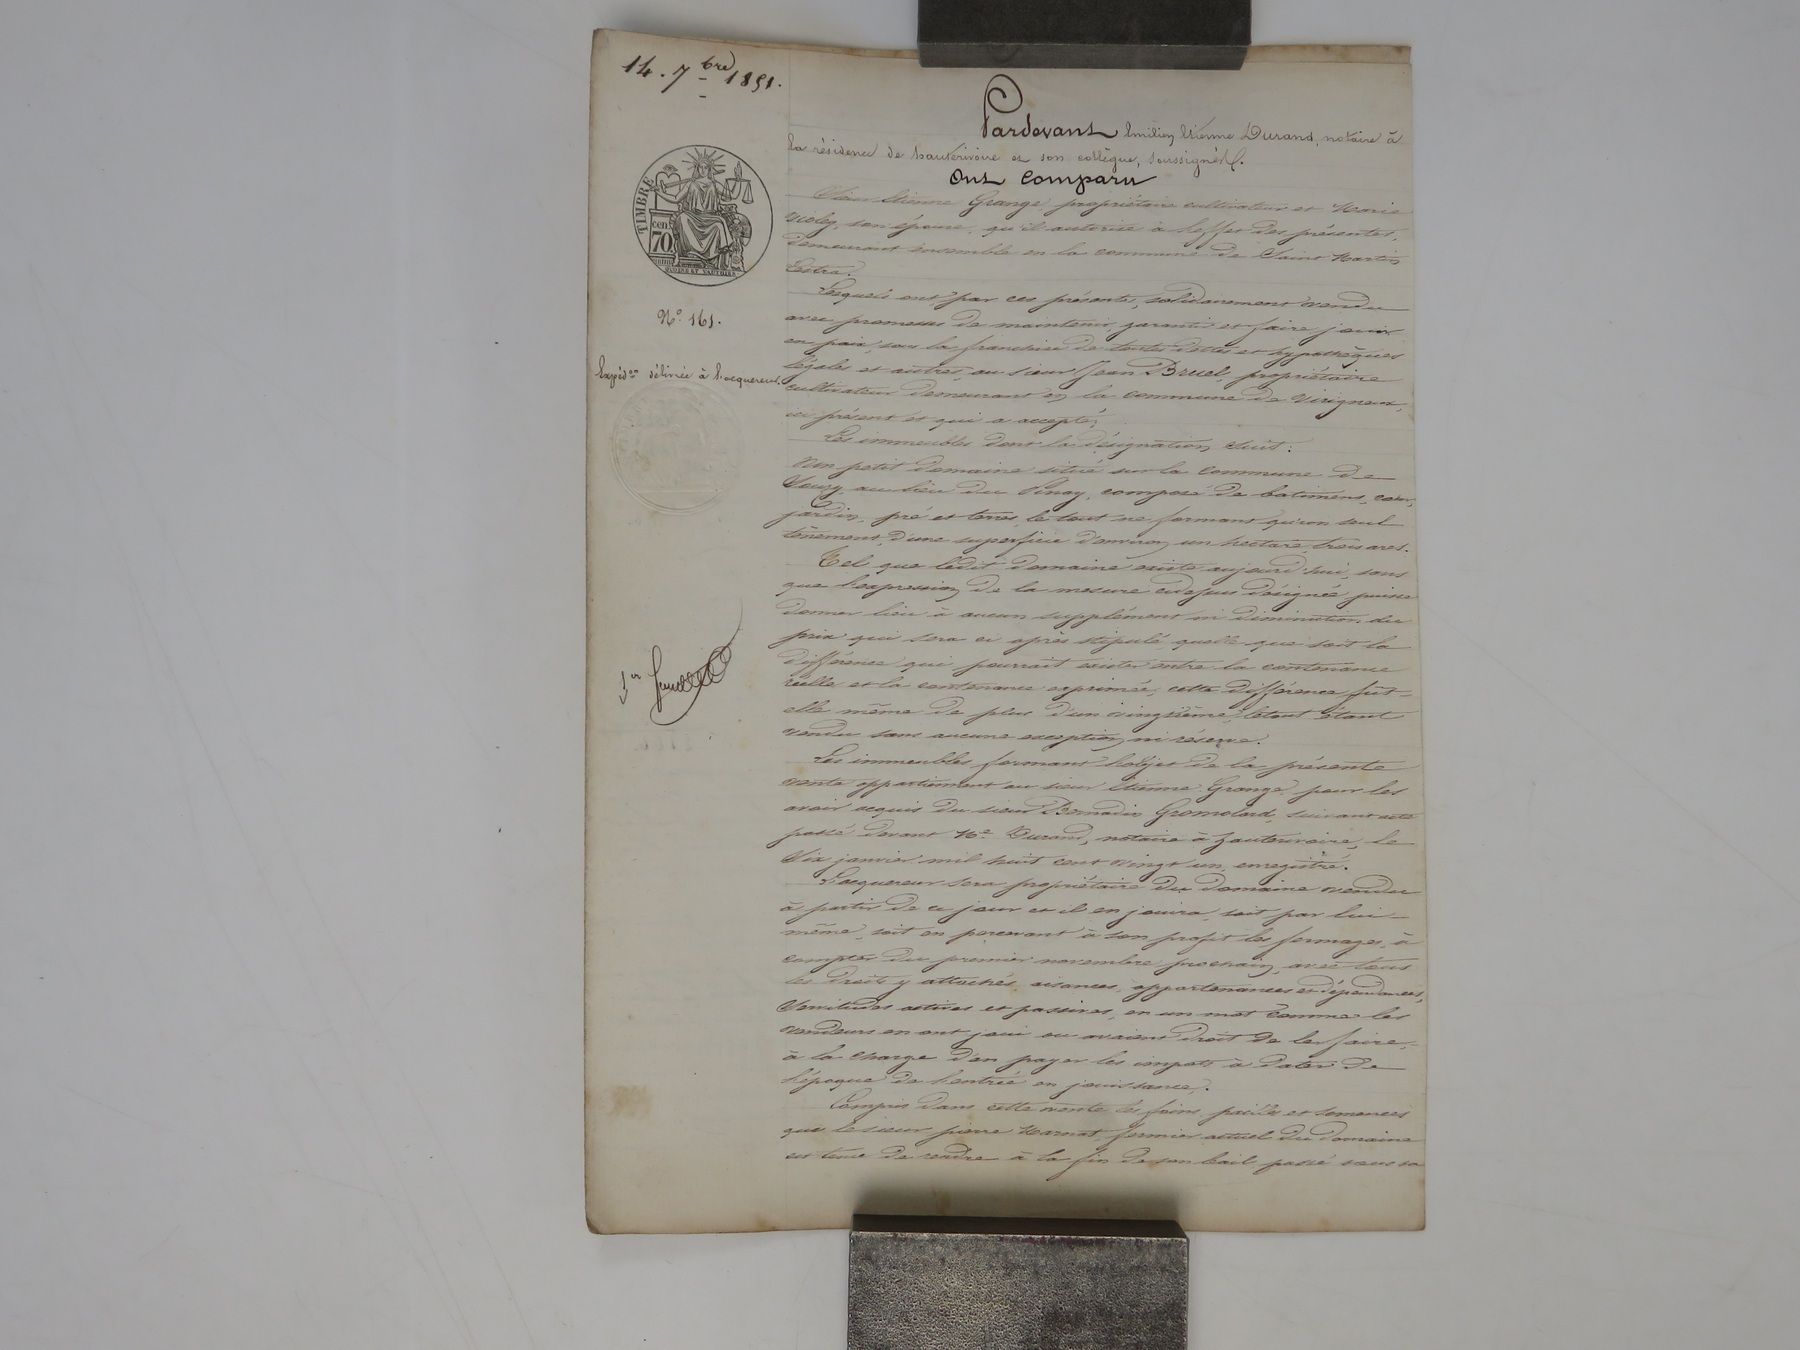 14. 7bre 1851.
TIMBRE
cen. 70
No. 161.
Expédon délivrée à l'acquereur.
1er
Pardevant Emilien Etienne Durand, notaire à
la résidence de hauterivoire et son collègue, soussignés.
Ont Comparu
Sieur Etienne Grange, propriétaire cultivateur et Marie
son épouse, qu'il autorise à l'effet des présentes,
demeurant ensemble en la commune de Saint Martin
Lestra.
Lesquels ont par ces présentes, solidairement vendu
avec promesses de maintenir, garantir et faire jouir
en paix, sous la franchise de toutes dettes et hypothèques
légales et autres, au sieur Jean Bruel, propriétaire
cultivateur demeurant en la commune de Virigneux,
ici présent et qui a accepté,
Les immeubles dont la désignation suit:
Un petit domaine situé sur la commune de
Souzy, au lieu du Pinay, composé de batimens, cour,
jardin, pré et terres, le tout ne formant qu'un seul
tènement, d'une superficie d'environ un hectare trois ares.
Tel que ledit domaine existe aujourd'hui, sans
que l'expression de la mesure cidessus désignée puisse
donner lieu à aucun supplément ni diminution du
prix qui sera ci après stipulé, quelle que soit la
différence qui pourrait exister entre la contenance
réelle et la contenance exprimée, cette différence fût-
elle même de plus d'un vingtième, le tout étant
vendu sans aucune exception ni réserve.
Les immeubles formant l'objet de la présente
vente appartiennent au sieur Etienne Grange pour les
avoir acquis du sieur Gromolard, suivant acte
passé devant Me Durand, notaire à hauterivoire, le
dix janvier mil huit cent vingt un, enregistré.
L'acquereur sera propriétaire du domaine vendu
à partir de ce jour et il en jouira, soit par lui-
même, soit en percevant à son profit les fermages, à
compter du premier novembre prochain, avec tous
les droits y attachés, aisances, appartenances et dépendances,
servitudes actives et passives, en un mot comme les
vendeurs en ont joui ou avaient droit de le faire,
à la charge d'en payer les impots à dater de
l'époque de l'entrée en jouissance.
Compris dans cette vente les foins, pailles et semences
que le sieur pierre fermier actuel du domaine
est tenu de rendre à la fin de son bail passé sous sa